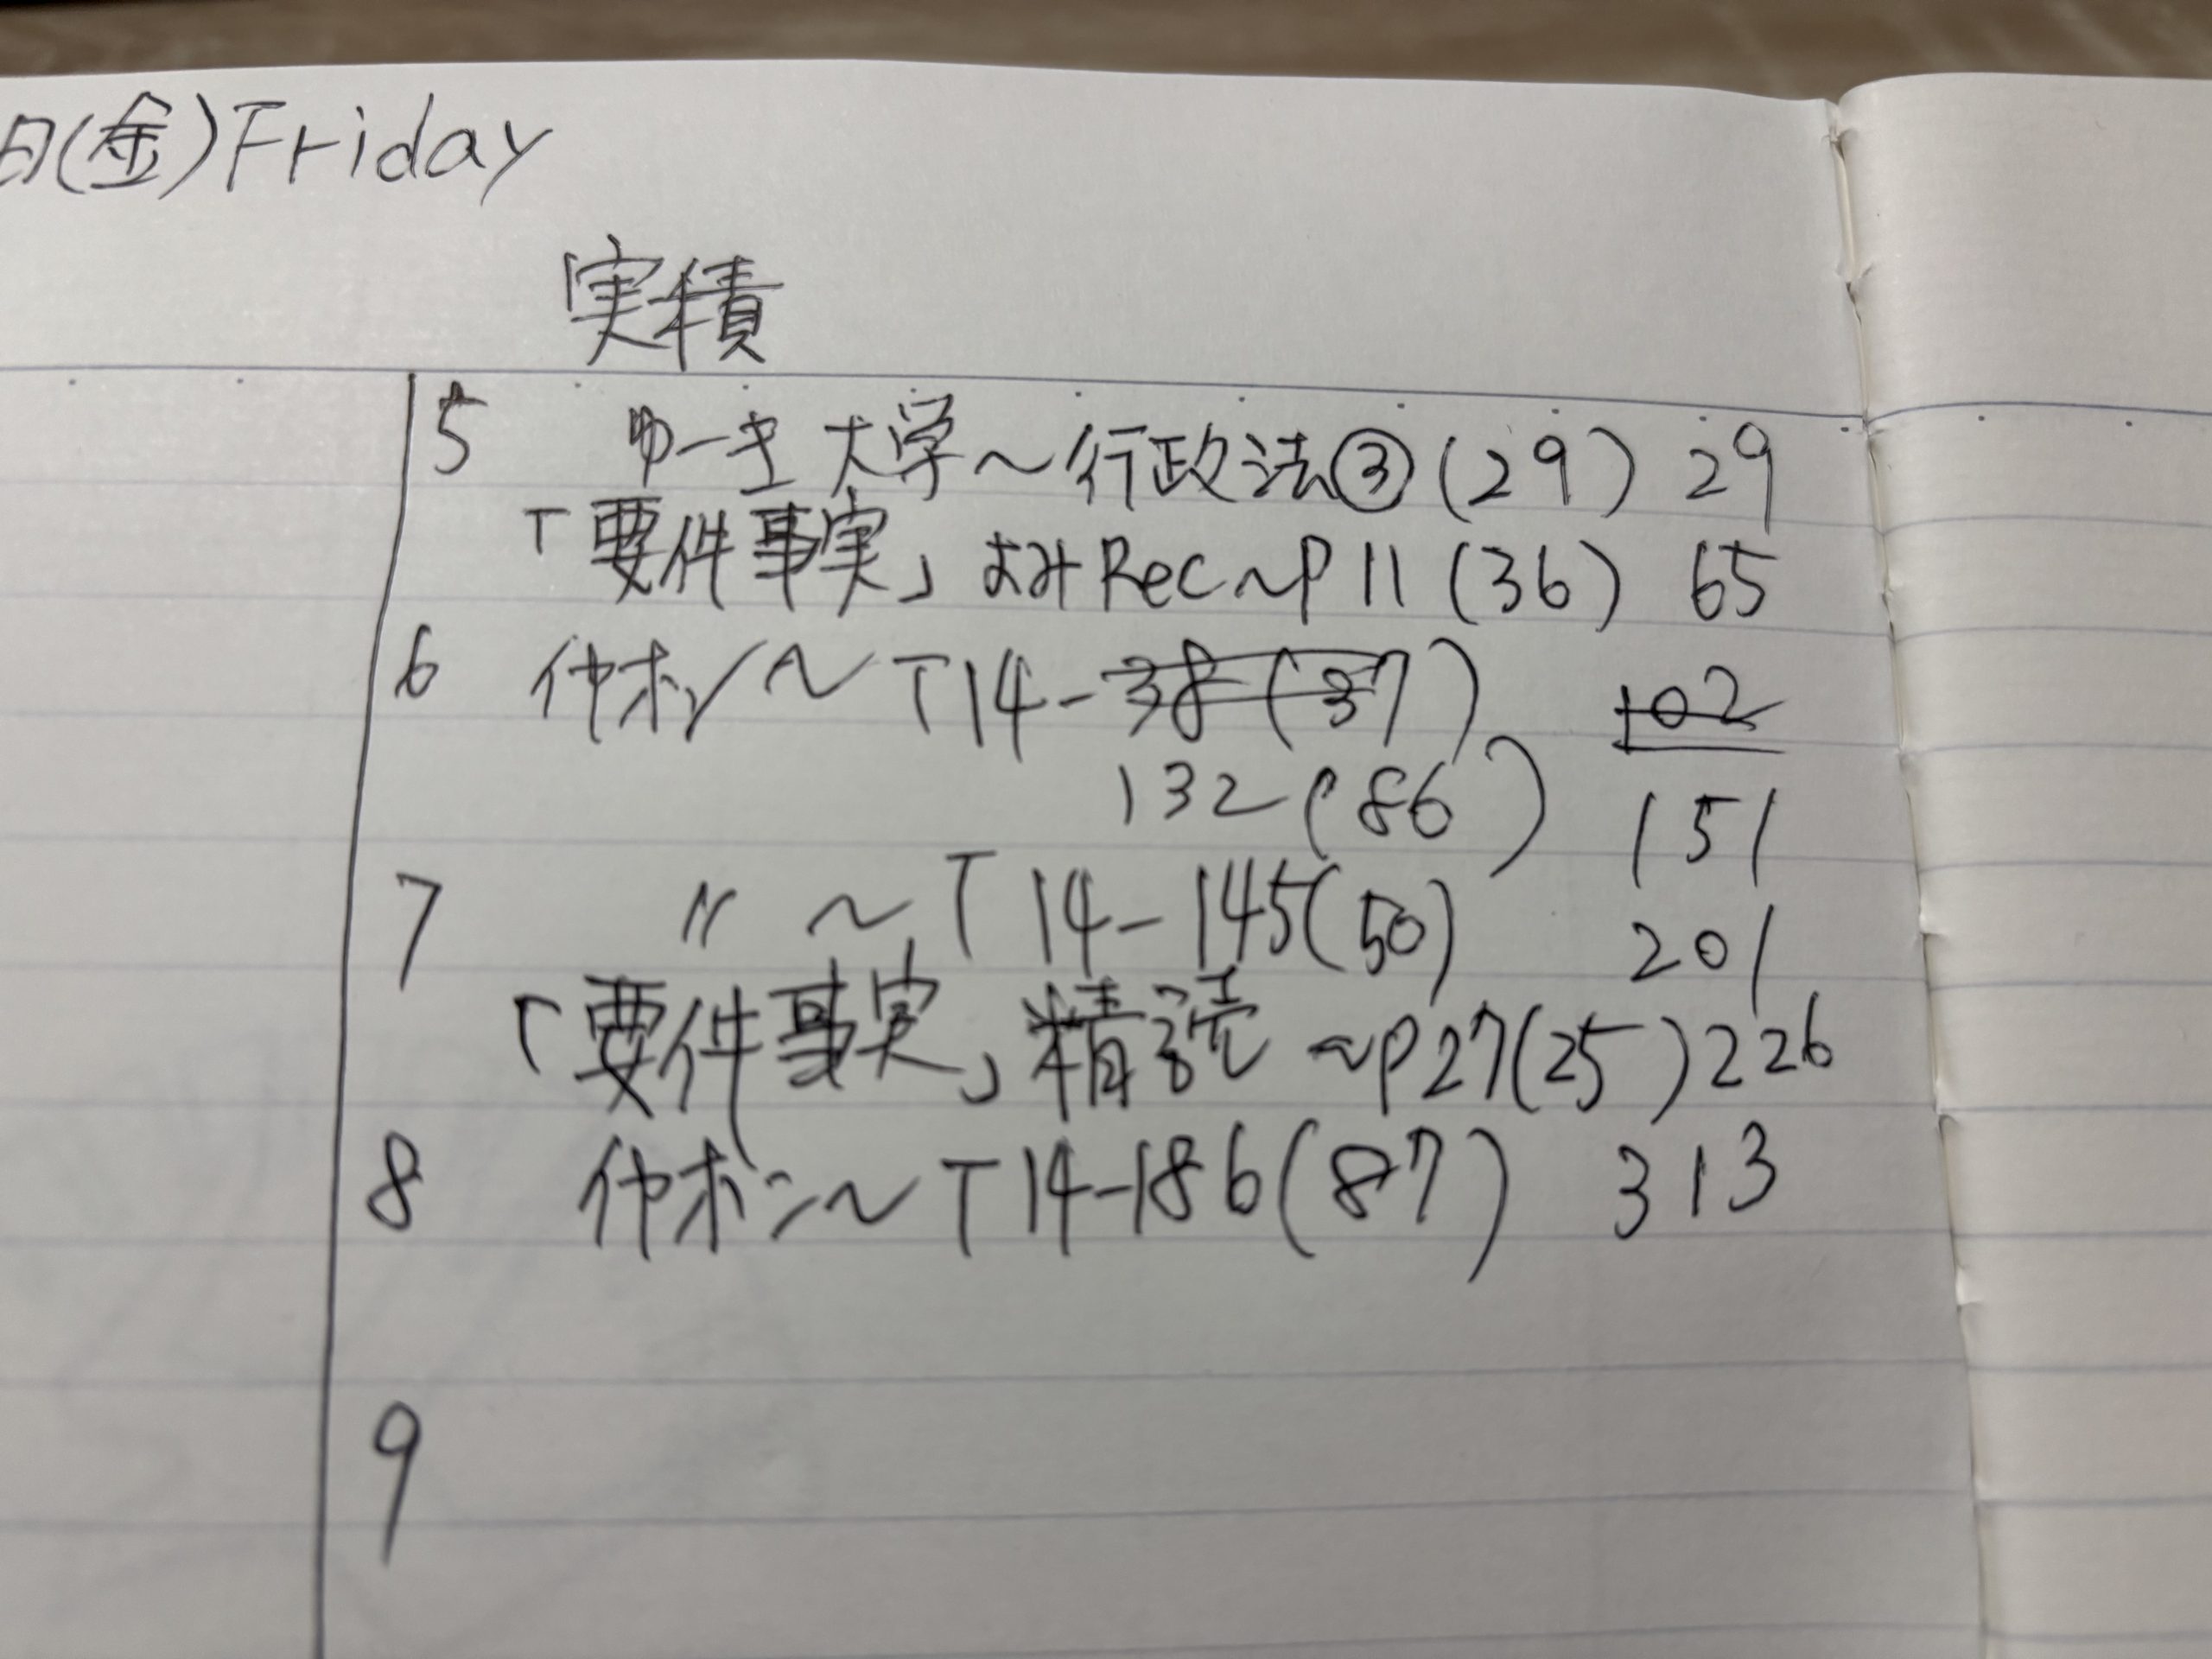 日(金)Friday
実積
5 ゆーき大学〜行政法③(29) 29
「要件事実」よみRec〜P11(36) 65
6 仲ホン〜T14-38(37) 102
132(86) 151
7 〃 〜T14-145(50) 201
「要件事実」精読 〜P27(25) 226
8 仲ホン〜T14-186(87) 313
9